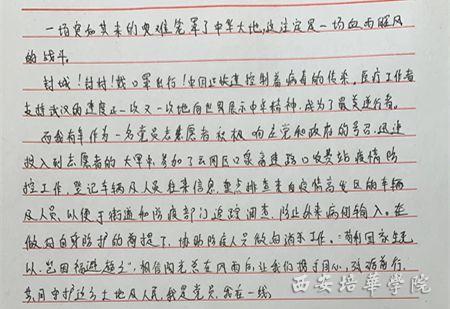 一场突如其来的灾难笼罩了中华大地，这注定是一场血雨腥风
的战斗。
封城！封村！戴口罩出行！中国正快速控制着病毒的传染。医疗工作者
支持武汉的速度正一次又一次地向世界展示中华精神，成为了最美逆行者。
而我有幸作为一名党员志愿者积极响应党和政府的号召，迅速
投入到志愿者的大军中，参加了 高速路口收费站疫情防
控工作，登记车辆及人员往来信息，重点排查来自疫情高发区的车辆
及人员，以便于街道和防疫部门追踪调查，防止外来病例输入。在
做好自身防护的前提下，协助防疫人员做好消杀工作。“苟利国家生死
以，岂因祸避趋之”，相信阳光总在风雨后，让我们携手同心，砥砺前行，
共同守护这方土地及人民，我是党员，我在一线。
西安培華学院